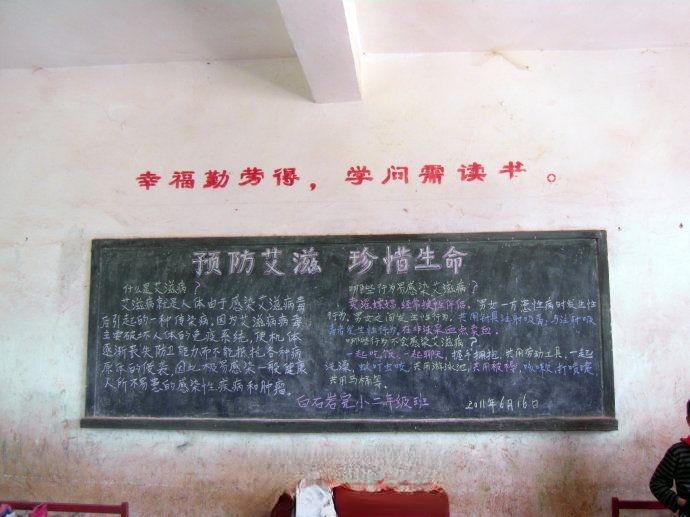 幸福勤劳得，学问需读书。
预防艾滋 珍惜生命
什么是艾滋病？
艾滋病就是人体由于感染艾滋病毒
后引起的一种传染病，因为艾滋病病毒
主要破坏人体的免疫系统，使机体
逐渐丧失防卫能力而不能抵抗各种病
原体的侵袭，因此极易感染一般健康
人所不易患的感染性疾病和肿瘤。
哪些行为易感染艾滋病？
男女一方患性病时发生性
行为，男女之间发生性行为，共用针具注射吸毒，与注射吸
毒者发生性行为，在非法采血点卖血。
哪些行为不会感染艾滋病？
一起吃饭，一起聊天，握手拥抱，共用劳动工具，一起
洗澡，蚊叮虫咬，共用游泳池，共用被褥，咳嗽、打喷嚏
共用马桶等。
白石岩完小二年级班
2011年6月16日